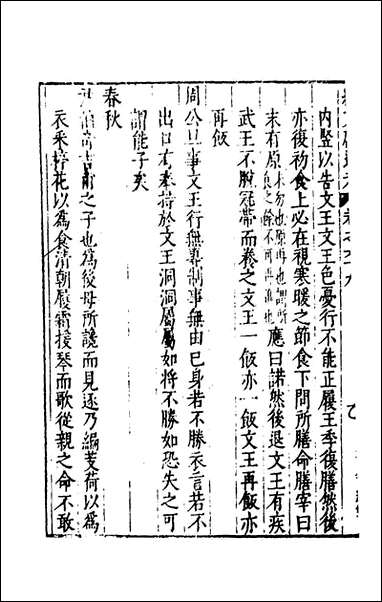 內豎以告文王文王色憂行不能正履王季復膳然後
亦復初食上必在視寒暖之節食下問所膳命膳宰曰
末有原末勿也原再也謂所食之餘不可再進也應曰諾然後退文王有疾
武王不脫冠帶而養之文王一飯亦一飯文王再飯亦
再飯
周公旦事文王行無專制事無由已身若不勝衣言若不
出口有奉持於文王洞洞屬屬如將不勝如恐失之可
謂能子矣
春秋
尹伯奇吉甫之子也為後母所讒而見逐乃編芰荷以為
衣采楟花以為食清朝履霜援琴而歌從親之命不敢